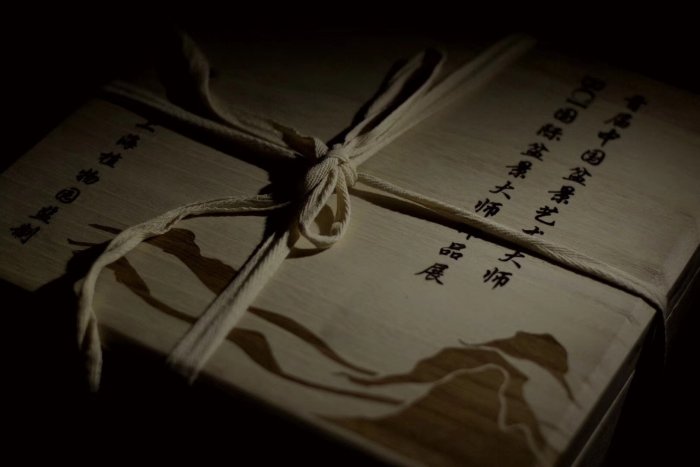 首届中国盆景艺术大师
BCI国际盆景大师作品展
上海植物园监制